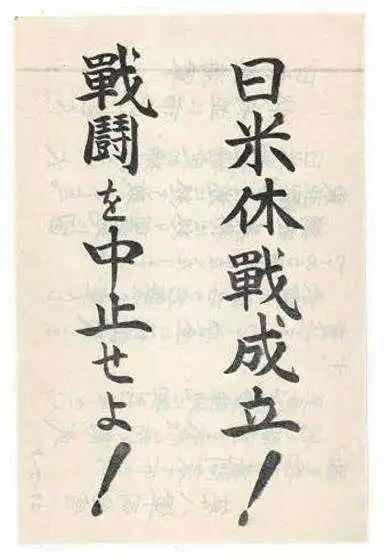 日米休戰成立!
戰鬪を中止せよ!